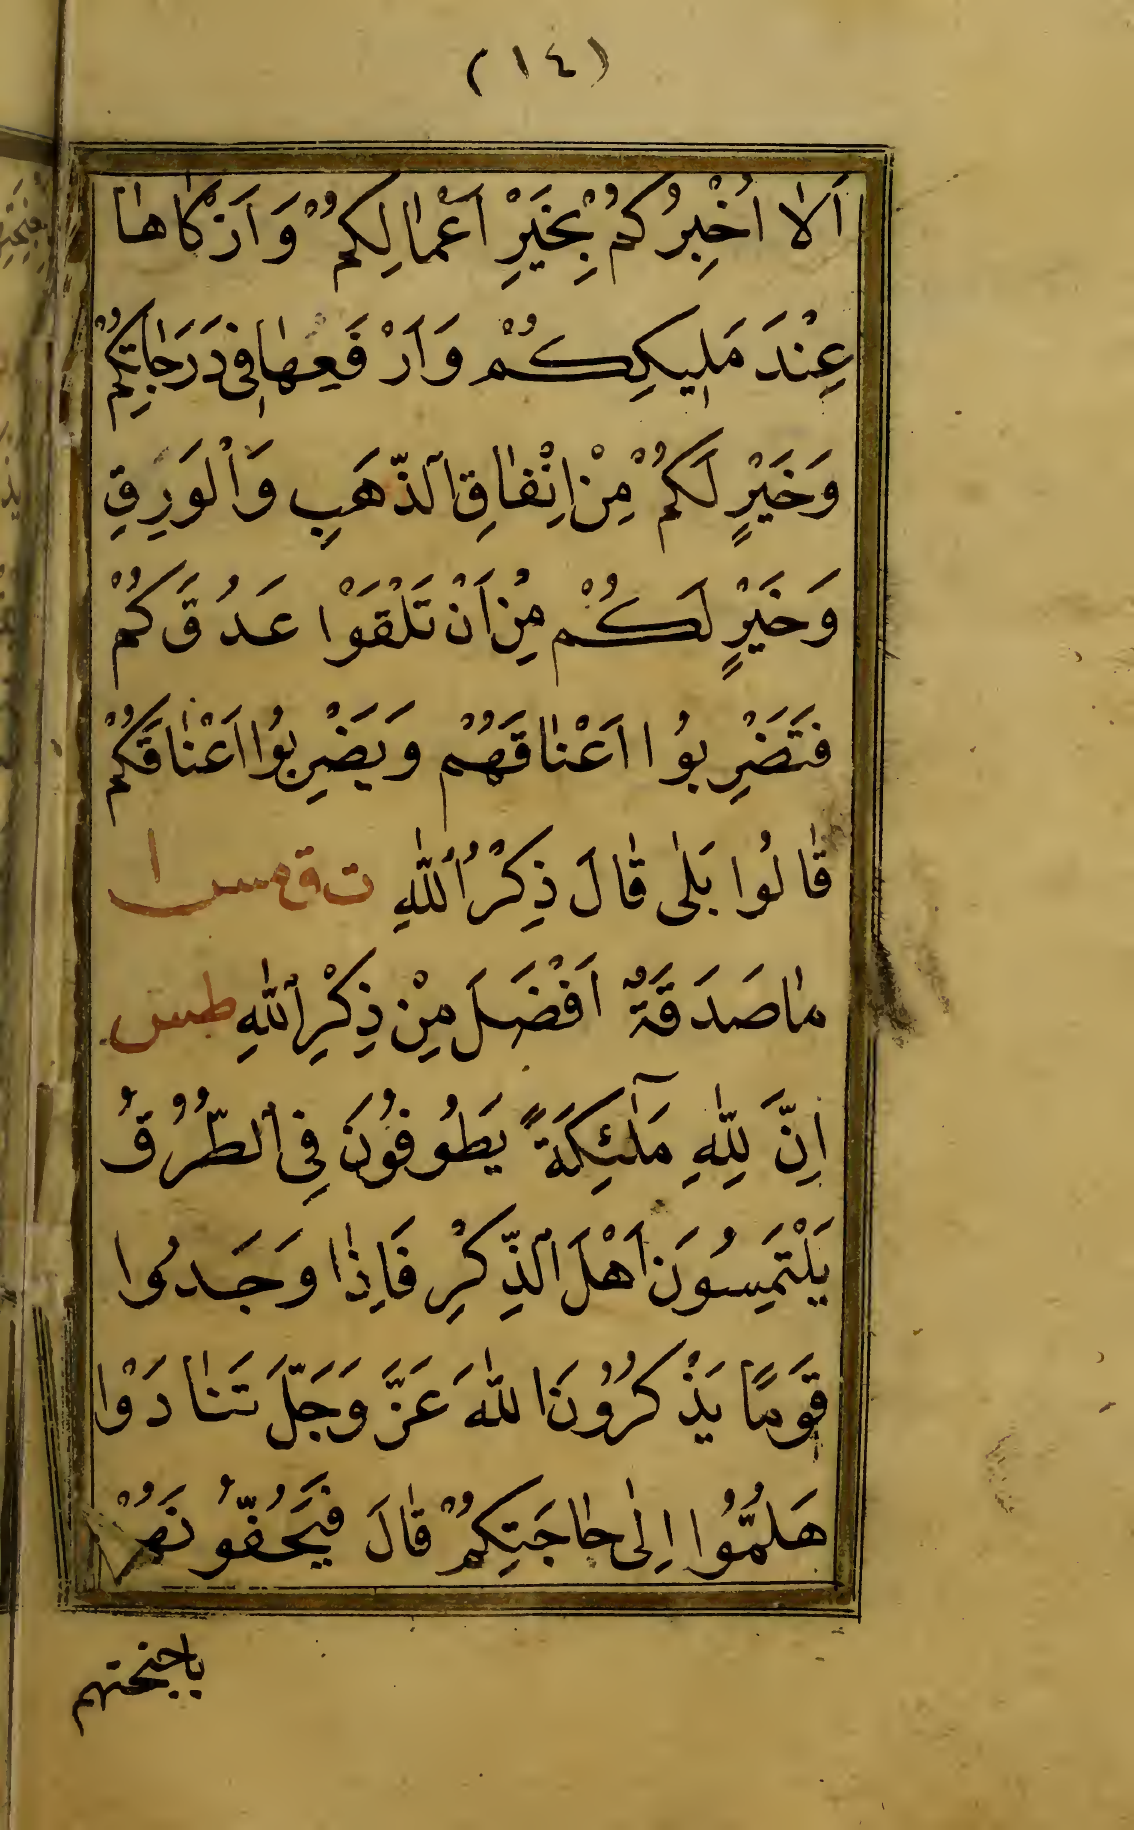 (١٤)
اَلَا اُخْبِرُكُمْ بِخَيْرِ اَعْمَالِكُمْ وَاَزْكَاهَا
عِنْدَ مَلِيكِكُمْ وَاَرْفَعِهَا فِى دَرَجَاتِكُمْ
وَخَيْرٍ لَكُمْ مِنْ اِنْفَاقِ الذَّهَبِ وَالْوَرِقِ
وَخَيْرٍ لَكُمْ مِنْ اَنْ تَلْقَوْا عَدُوَّكُمْ
فَتَضْرِبُوا اَعْنَاقَهُمْ وَيَضْرِبُوا اَعْنَاقَكُمْ
قَالُوا بَلٰى قَالَ ذِكْرُ اللّٰهِ ت ق مس ا
مَا صَدَقَةٌ اَفْضَلَ مِنْ ذِكْرِ اللّٰهِ طس
اِنَّ لِلّٰهِ مَلٰٓئِكَةً يَطُوفُونَ فِى الطُّرُقِ
يَلْتَمِسُونَ اَهْلَ الذِّكْرِ فَاِذَا وَجَدُوا
قَوْمًا يَذْكُرُونَ اللّٰهَ عَزَّ وَجَلَّ تَنَادَوْا
هَلُمُّوا اِلٰى حَاجَتِكُمْ قَالَ فَيَحُفُّونَهُمْ
باجنحتهم